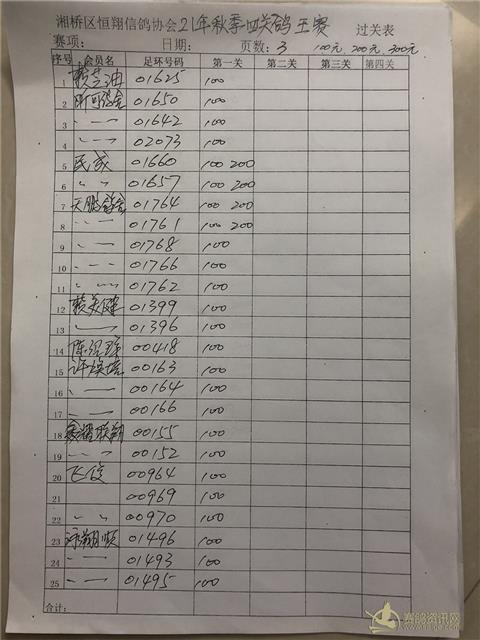 湘桥区恒翔信鸽协会21年秋季四关鸽王赛 过关表
赛项: 日期: 页数: 3 100元, 200元, 300元
序号 会员名 足环号码 第一关 第二关 第三关 第四关
1 赖芝油 01625 100
2 01650 100
3 〃 一 〃 01642 100
4 〃 一 〃 02073 100
5 民诚 01660 100 200
6 〃 〃 01657 100 200
7 天鹏鸽舍 01764 100 200
8 〃 一 〃 01761 100 200
9 〃 一 〃 01768 100
10 〃 一 〃 01766 100
11 〃 一 〃 01762 100
12 赖美健 01399 100
13 〃 一 〃 01396 100
14 陈绍 00418 100
15 许焕 00163 100
16 〃 一 00164 100
17 〃 一 00166 100
18 联翔 00155 100
19 〃 一 〃 00152 100
20 飞俊 00964 100
21 00969 100
22 〃 〃 00970 100
23 翔顺 01496 100
24 〃 一 01493 100
25 〃 一 01495 100
合计:
赛鸽资讯网